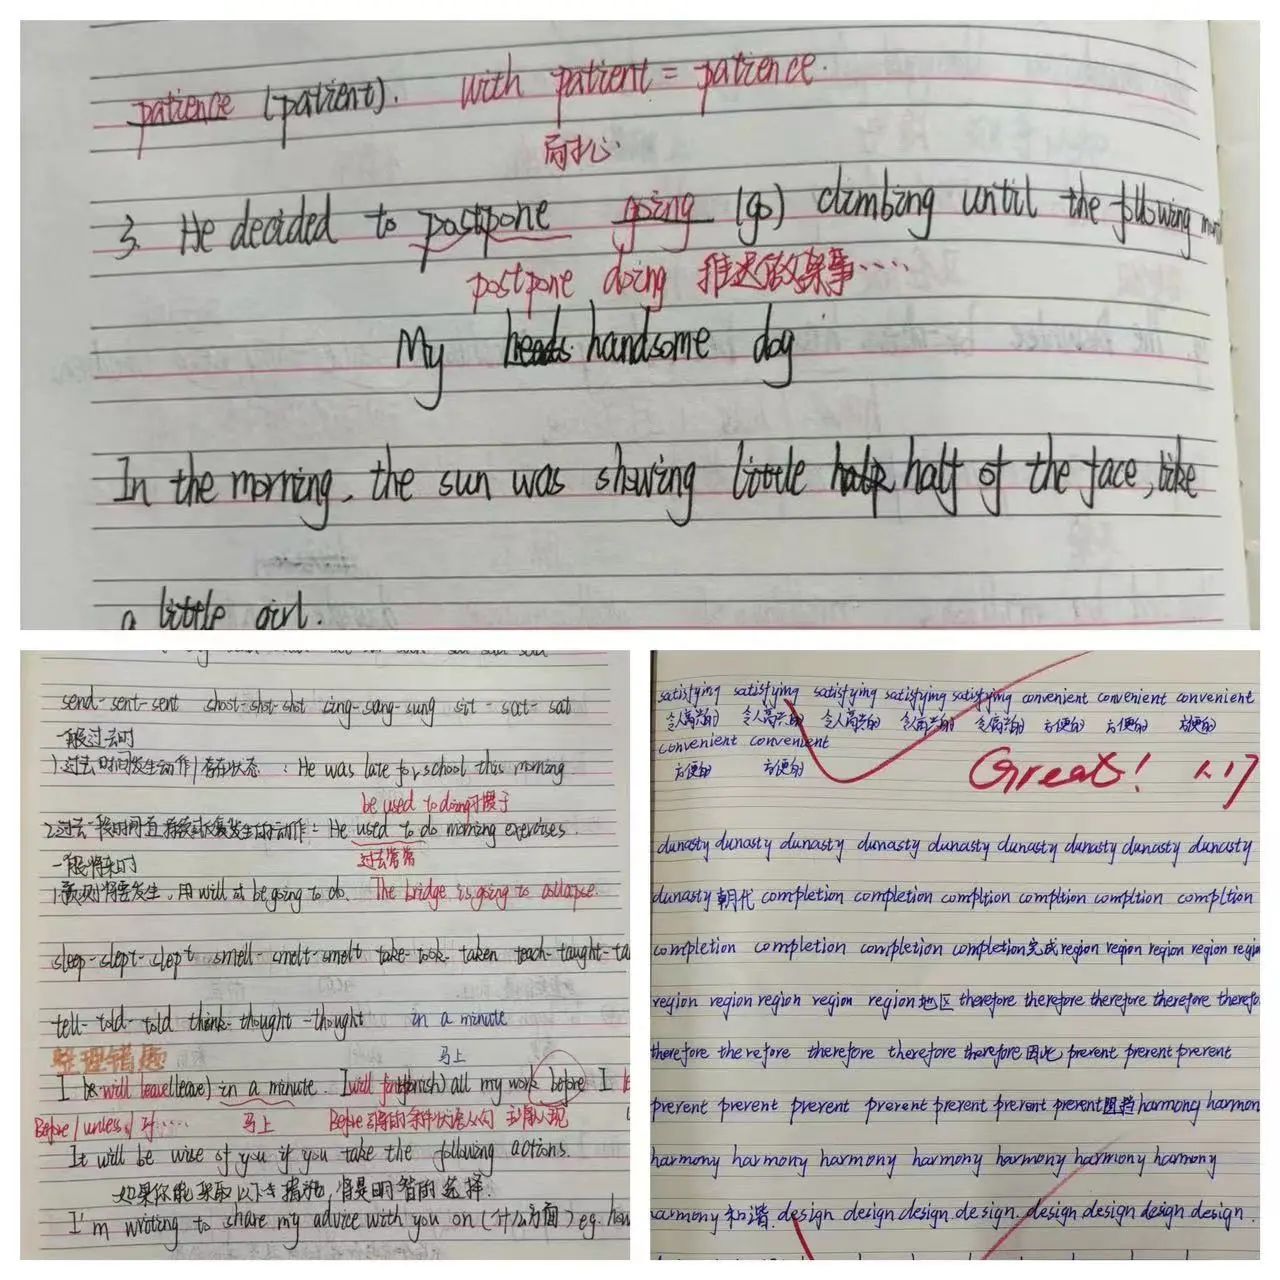 patience (patient). with patient = patience.
耐心.
3. He decided to postpone going (go) climbing until the following
postpone doing 推迟做某事····
My handsome dog
In the morning, the sun was showing little half of the face, like
a little girl.
send-sent-sent shoot-shot-shot sing-sang-sung sit-sat-sat
一般过去时
1.过去时间发生动作/存在状态 : He was late for school this morning.
be used to doing习惯于
2.过去一段时间直持续或反复发生的动作: He used to do morning exercises.
过去常常
一般将来时
1.预测将要发生, 用 will 或 be going to do. The bridge is going to collapse.
sleep-slept-slept smell-smelt-smelt take-took-taken teach-taught-ta
tell-told-told think-thought-thought in a minute
整理错题 马上
I will leave(leave) in a minute. I will finish(finish) all my work before I
Before/unless/ 马上 Before引导的条件状语从句 主将从现
It will be wise of you if you take the following actions.
如果你能采取以下措施,将是明智的选择.
I'm writing to share my advice with you on (什么方面) eg. how
satisfying satisfying satisfying satisfying satisfying convenient convenient convenient
令人高兴的 令人高兴的 令人高兴的 令人高兴的 令人高兴的 方便的 方便的 方便的
convenient convenient
方便的 方便的
Great! 1.17
dunasty dunasty dunasty dunasty dunasty dunasty dunasty dunasty dunasty
dunasty 朝代 completion completion compltion compltion compltion compltion
completion completion completion completion 完成 region region region region regi
region region region region region 地区 therefore therefore therefore therefore therefo
therefore therefore therefore therefore therefore 因此 prevent prevent prevent
prevent prevent prevent prevent prevent prevent prevent 阻挡 harmony harmon
harmony harmony harmony harmony harmony harmony harmony
harmony 和谐. design design design design. design design design design.